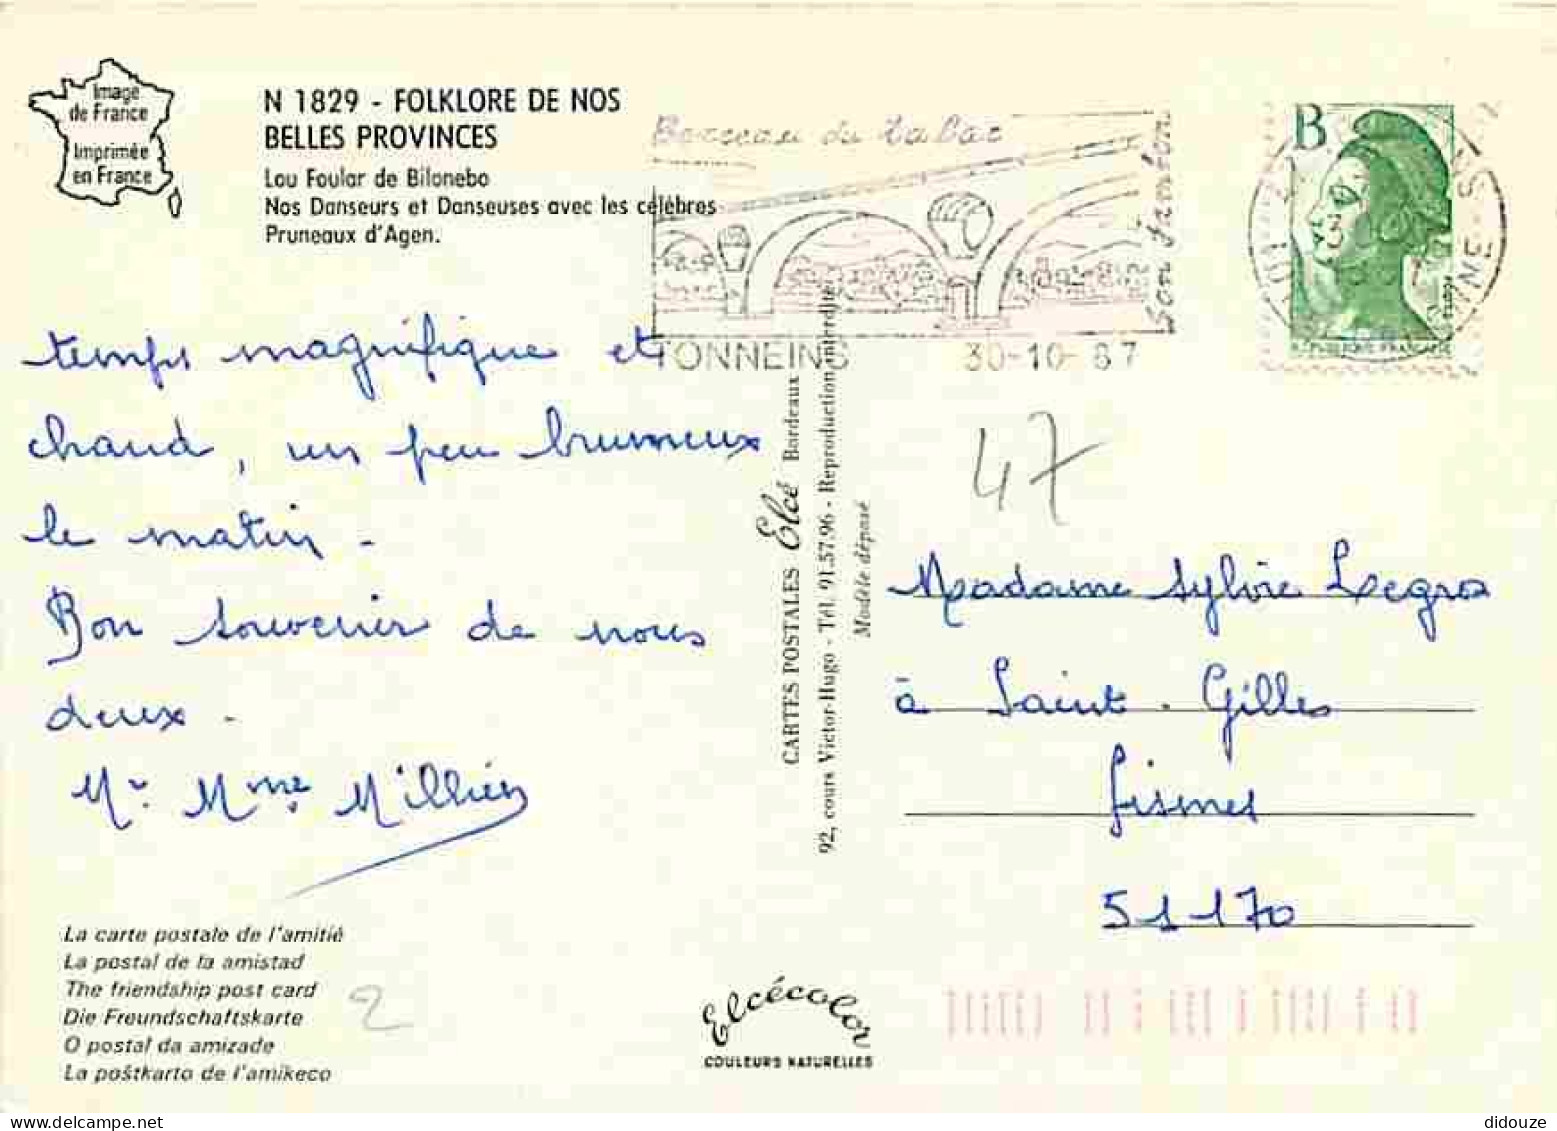 Image
de France
Imprimée
en France
N 1829 - FOLKLORE DE NOS
BELLES PROVINCES
Lou Foular de Bilonebo
Nos Danseurs et Danseuses avec les célèbres
Pruneaux d'Agen.
Berceau du tabac
son jambon
TONNEINS 30-10-87
B
temps magnifique et
chaud, un peu brumeux
le matin -
Bon souvenir de nous
deux -
Mr. Mme. Milliés
CARTES POSTALES Elcé Bordeaux
92, cours Victor-Hugo - Tél. 91.57.96 - Reproduction interdite
Modèle déposé
47
Madame Sylvie Legros
à Saint-Gilles
Fismes
51170
La carte postale de l'amitié
La postal de la amistad
The friendship post card
Die Freundschaftskarte
O postal da amizade
La poŝtkarto de l'amikeco
2
Elcécolor
COULEURS NATURELLES
didouze